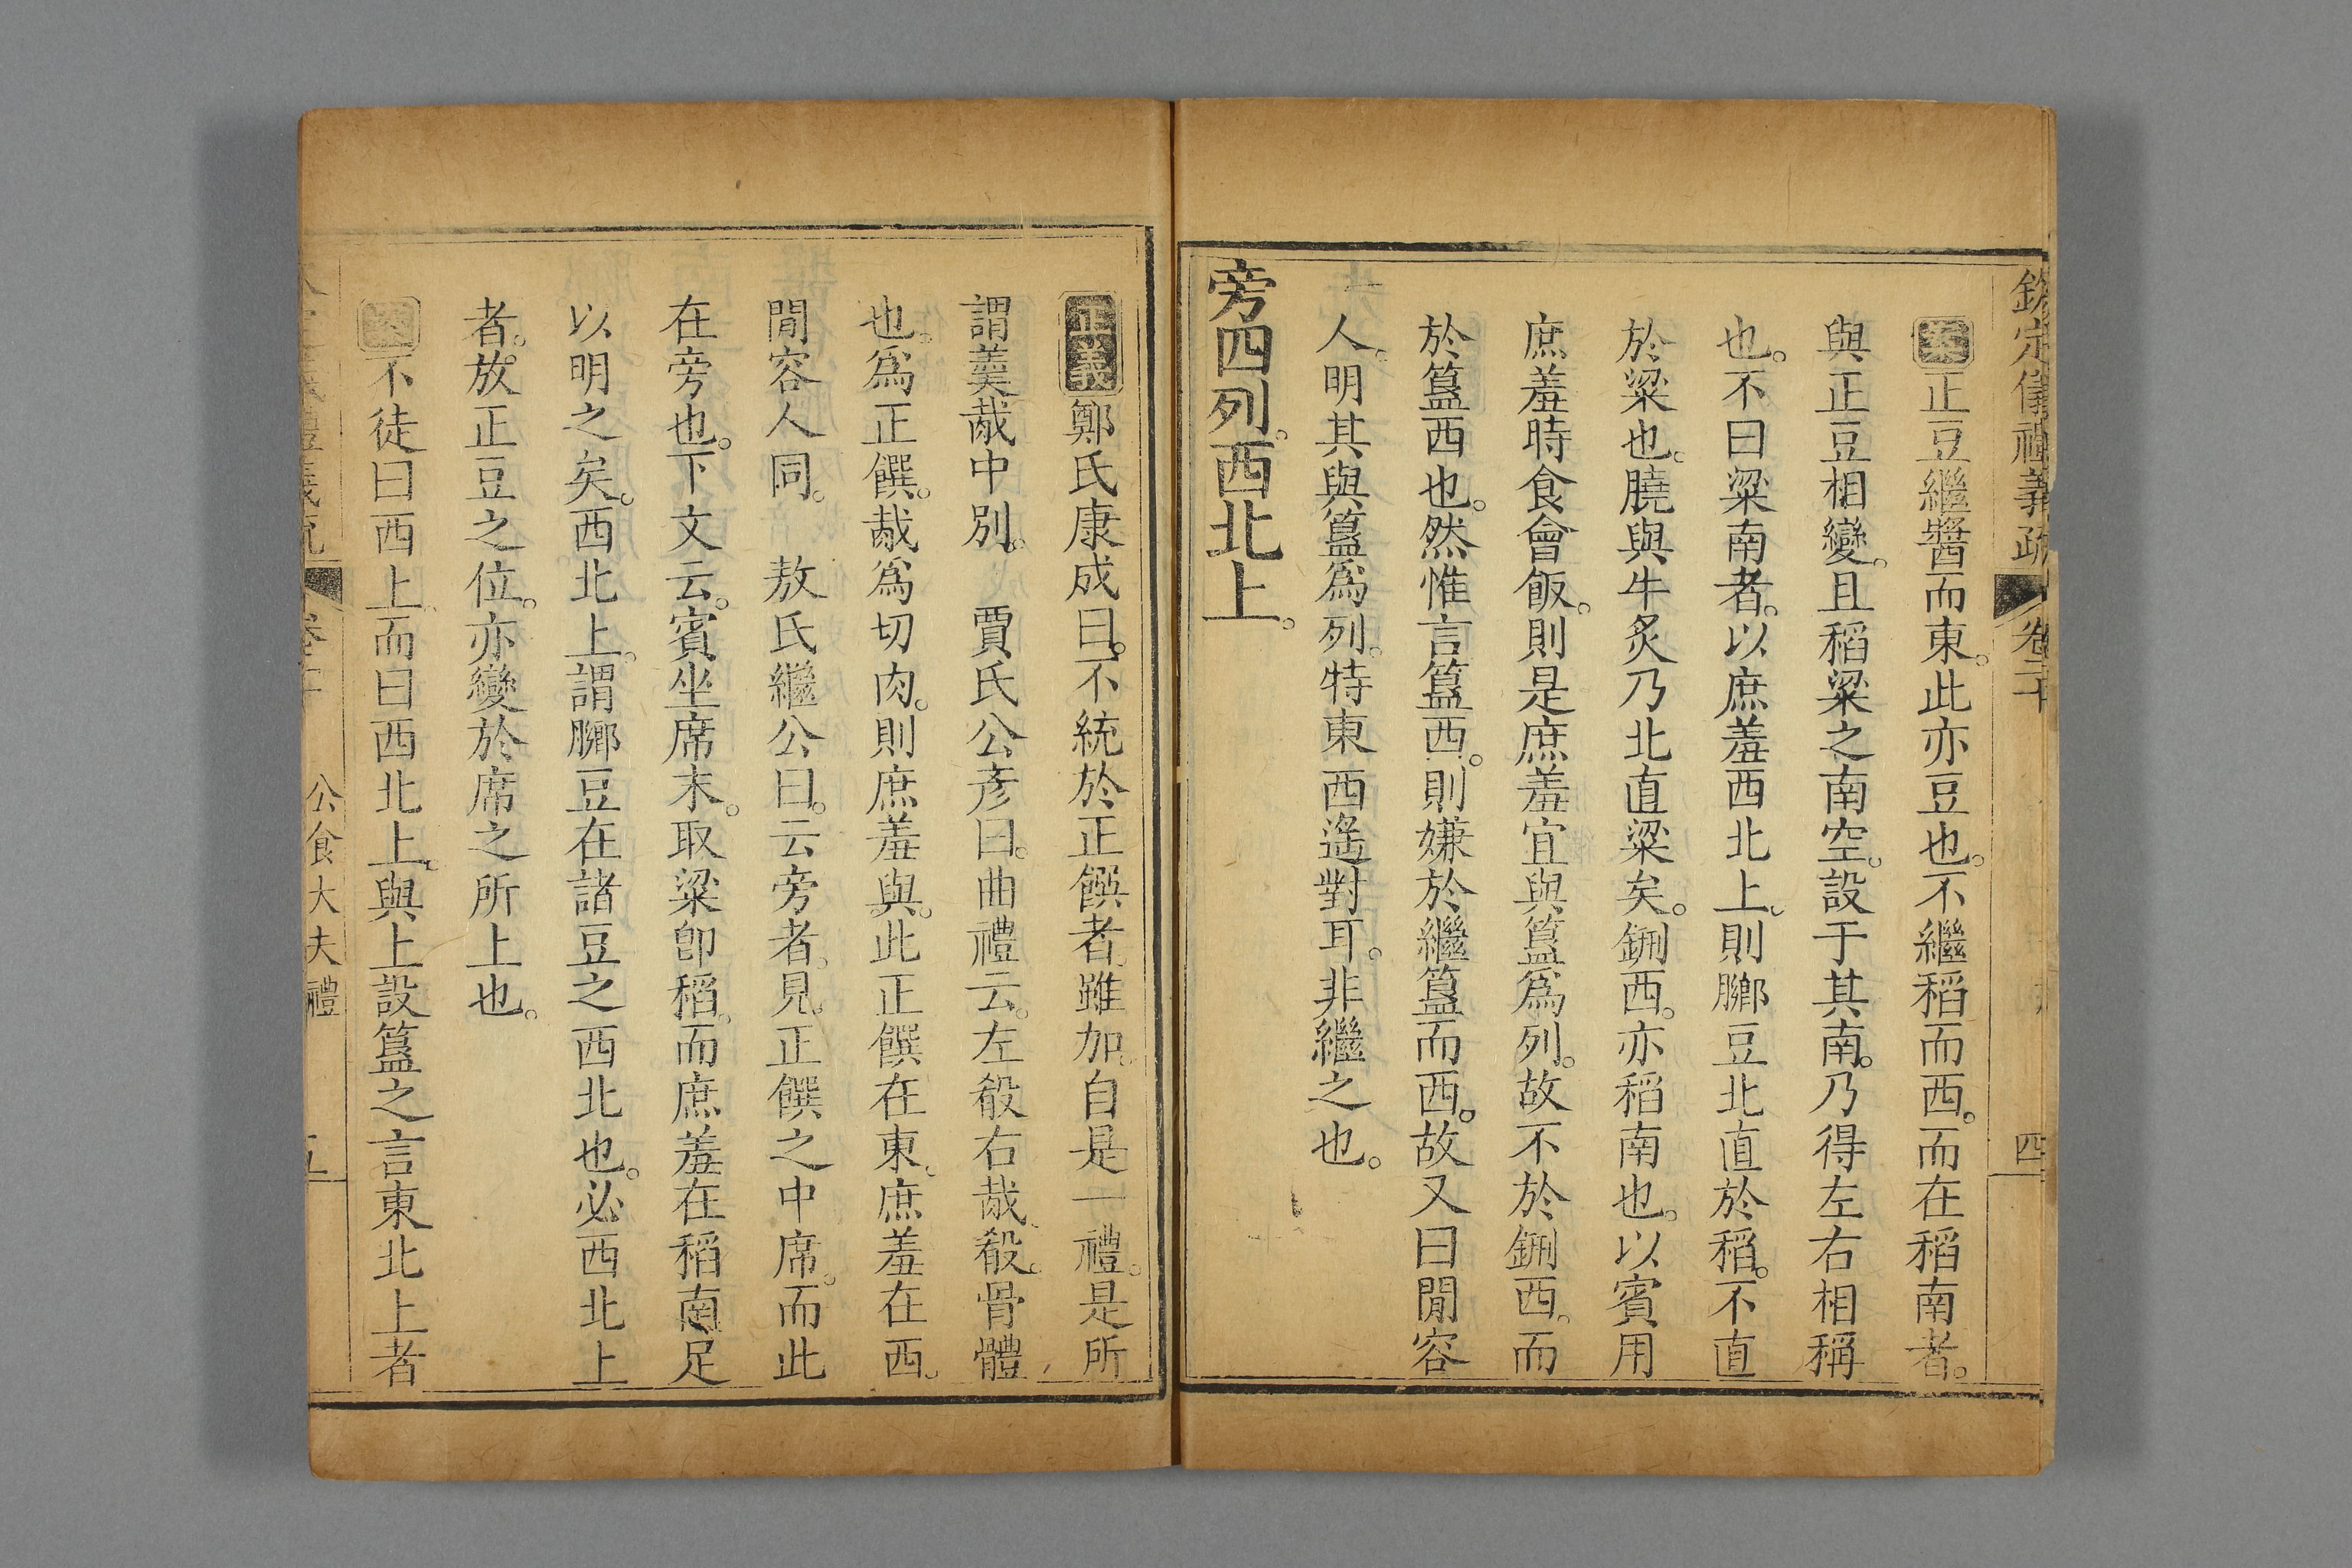 欽定儀禮義疏 卷二十 四
案正豆繼醬而東。此亦豆也。不繼稻而西。而在稻南者。
與正豆相變。且稻粱之南空。設于其南。乃得左右相稱
也。不曰粱南者。以庶羞西北上。則膷豆北直於稻。不直
於粱也。膮與牛炙乃北直粱矣。鉶西。亦稻南也。以賓用
庶羞時食會飯。則是庶羞宜與簋爲列。故不於鉶西。而
於簋西也。然惟言簋西。則嫌於繼簋而西。故又曰閒容
人。明其與簋爲列。特東西遙對耳。非繼之也。
旁四列。西北上。
正義鄭氏康成曰。不統於正饌者。雖加。自是一禮。是所
謂羹胾中別。 賈氏公彥曰。曲禮云。左殽右胾。殽。骨體
也。爲正饌。胾爲切肉。則庶羞與。此正饌在東。庶羞在西。
閒容人同。 敖氏繼公曰。云旁者。見正饌之中席。而此
在旁也。下文云。賓坐席末。取粱卽稻。而庶羞在稻南。足
以明之矣。西北上。謂膷豆在諸豆之西北也。必西北上
者。放正豆之位。亦變於席之所上也。
案不徒曰西上。而曰西北上。與上設簋之言東北上者
公食大夫禮 五